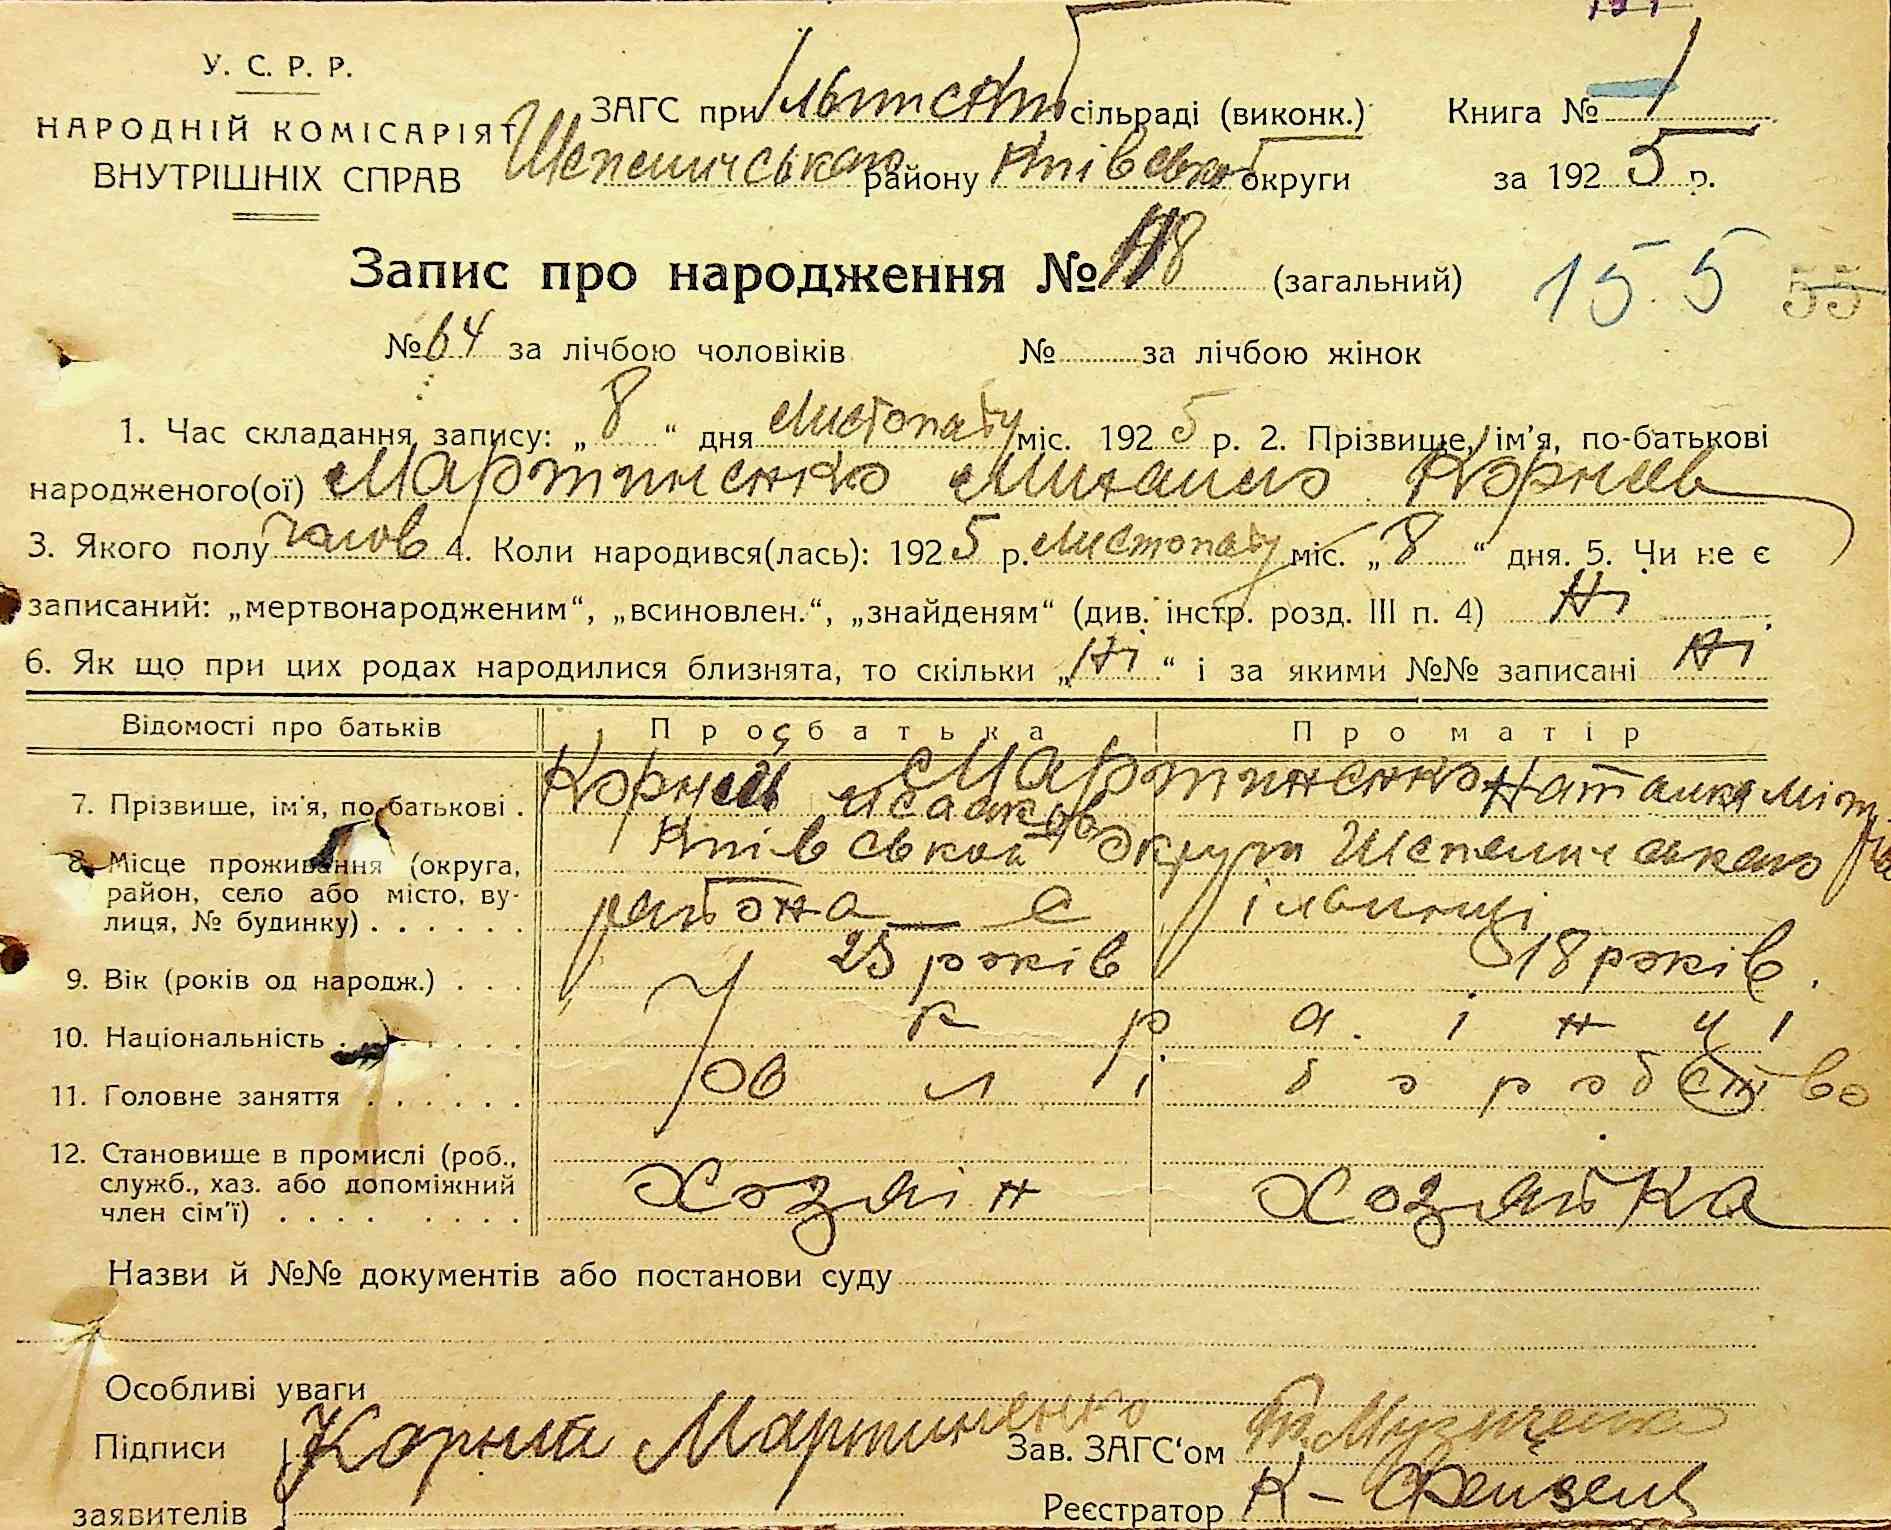 У. С. Р. Р.
НАРОДНІЙ КОМІСАРІЯТ
ВНУТРІШНІХ СПРАВ
ЗАГС при сільраді (виконк.)
Шепеличського району округи
Книга № 1
за 1925 р.
Запис про народження № 118 (загальний)
15.5 55
№ 64 за лічбою чоловіків № за лічбою жінок
1. Час складання запису: „8“ дня Листопаду міс. 1925 р. 2. Прізвище, ім'я, по-батькові
народженого(ої) Мартиненко Михайло Корнеев
3. Якого полу чолов 4. Коли народився(лась): 1925 р. Листопаду міс. „8“ дня. 5. Чи не є
записаний: „мертвонародженим“, „всиновлен.“, „знайденям“ (див. інстр. розд. III п. 4) Ні
6. Як що при цих родах народилися близнята, то скільки „Ні“ і за якими №№ записані Ні
Відомості про батьків Про батька Про матір
7. Прізвище, ім'я, по-батькові . Корней Исааков Мартиненко Наталия
8. Місце проживання (округа,
район, село або місто, ву-
лиця, № будинку) . . . . . .
округи Шепеличського
района с ільинці
9. Вік (років од народж.) . . . 25 років 18 років.
10. Національність . . . . . . . Українці
11. Головне заняття . . . . . . хліборобство
12. Становище в промислі (роб.,
служб., хаз. або допоміжний
член сім'ї) . . . . . . . . .
Хозяін Хозяйка
Назви й №№ документів або постанови суду
Особливі уваги
Підписи
заявителів
Корнии Мартиненко
Зав. ЗАГС‘ом
Реєстратор К-